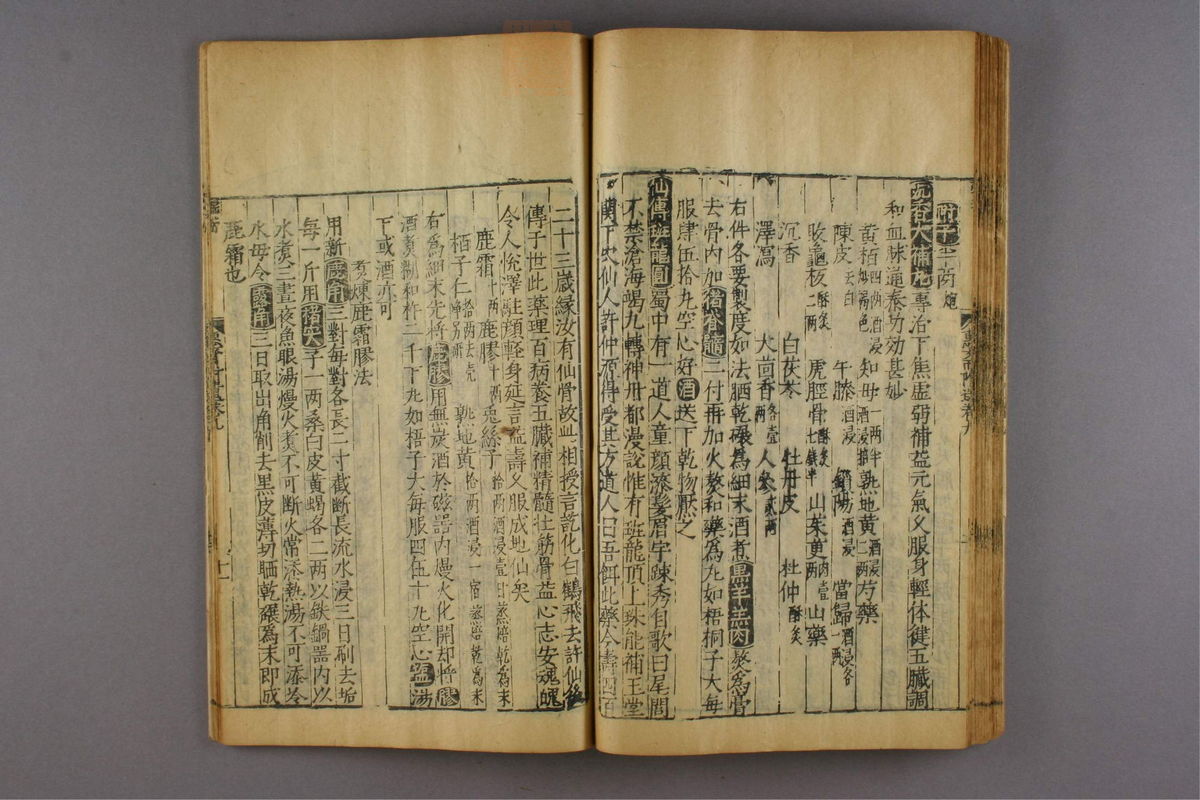 附子二兩炮
沉香大補丸專治下焦虛弱補益元氣久服身輕体健五臟調
和血脉通泰功効甚妙
黃栢四兩酒浸炒褐色 知母一兩半酒浸 熟地黃酒浸二兩 芍藥
陳皮去白 牛膝酒浸 鎖陽酒浸 當歸酒浸各一兩
敗龜板酥炙二兩 虎脛骨酥炙七錢半 山茱萸肉壹兩 山藥
沉香 白茯苓 牡丹皮 杜仲酥炙
澤瀉 大茴香各壹兩 人參貳兩
右件各要製度如法晒乾碾爲細末酒煮黑羊羔肉熬爲膏
去骨內加猪脊髓二付再加火熬和藥爲丸如梧桐子大每
服肆五拾丸空心好酒送下乾物壓之
仙傳斑龍圓蜀中有一道人童顔漆髮眉宇踈秀自歌曰尾閭
不禁滄海竭九轉神丹都漫說惟有斑龍頂上珠能補玉堂
關下穴仙人許仲源得受其方道人曰吾餌此藥今壽四百
二十三歲緣汝有仙骨故此相授言訖化白鶴飛去許仙後
傳子世此藥理百病養五臟補精髓壯筋骨益心志安魂魄
令人悅澤駐顔輕身延言益壽久服成地仙矣
鹿霜十兩 鹿膠十兩 兔絲子拾兩酒浸壹日蒸焙乾爲末
栢子仁拾兩去売淨另研 熟地黃拾兩酒浸一宿蒸焙乾爲末
右爲細末先將鹿膠用無灰酒於磁器內熳火化開却將膠
酒煮糊和杵二千下丸如梧子大每服四伍十丸空心盐湯
下或酒亦可
煮煉鹿霜膠法
用新鹿角三對每對各長二寸截斷長流水浸三日刷去垢
每一斤用楮实子一兩桑白皮黃蝎各二兩以鉄鍋器內以
水煮三晝夜魚眼湯熳火煮不可断火常添熱湯不可添冷
水毋令露角三日取出角削去黑皮薄切晒乾碾爲末即成
鹿霜也